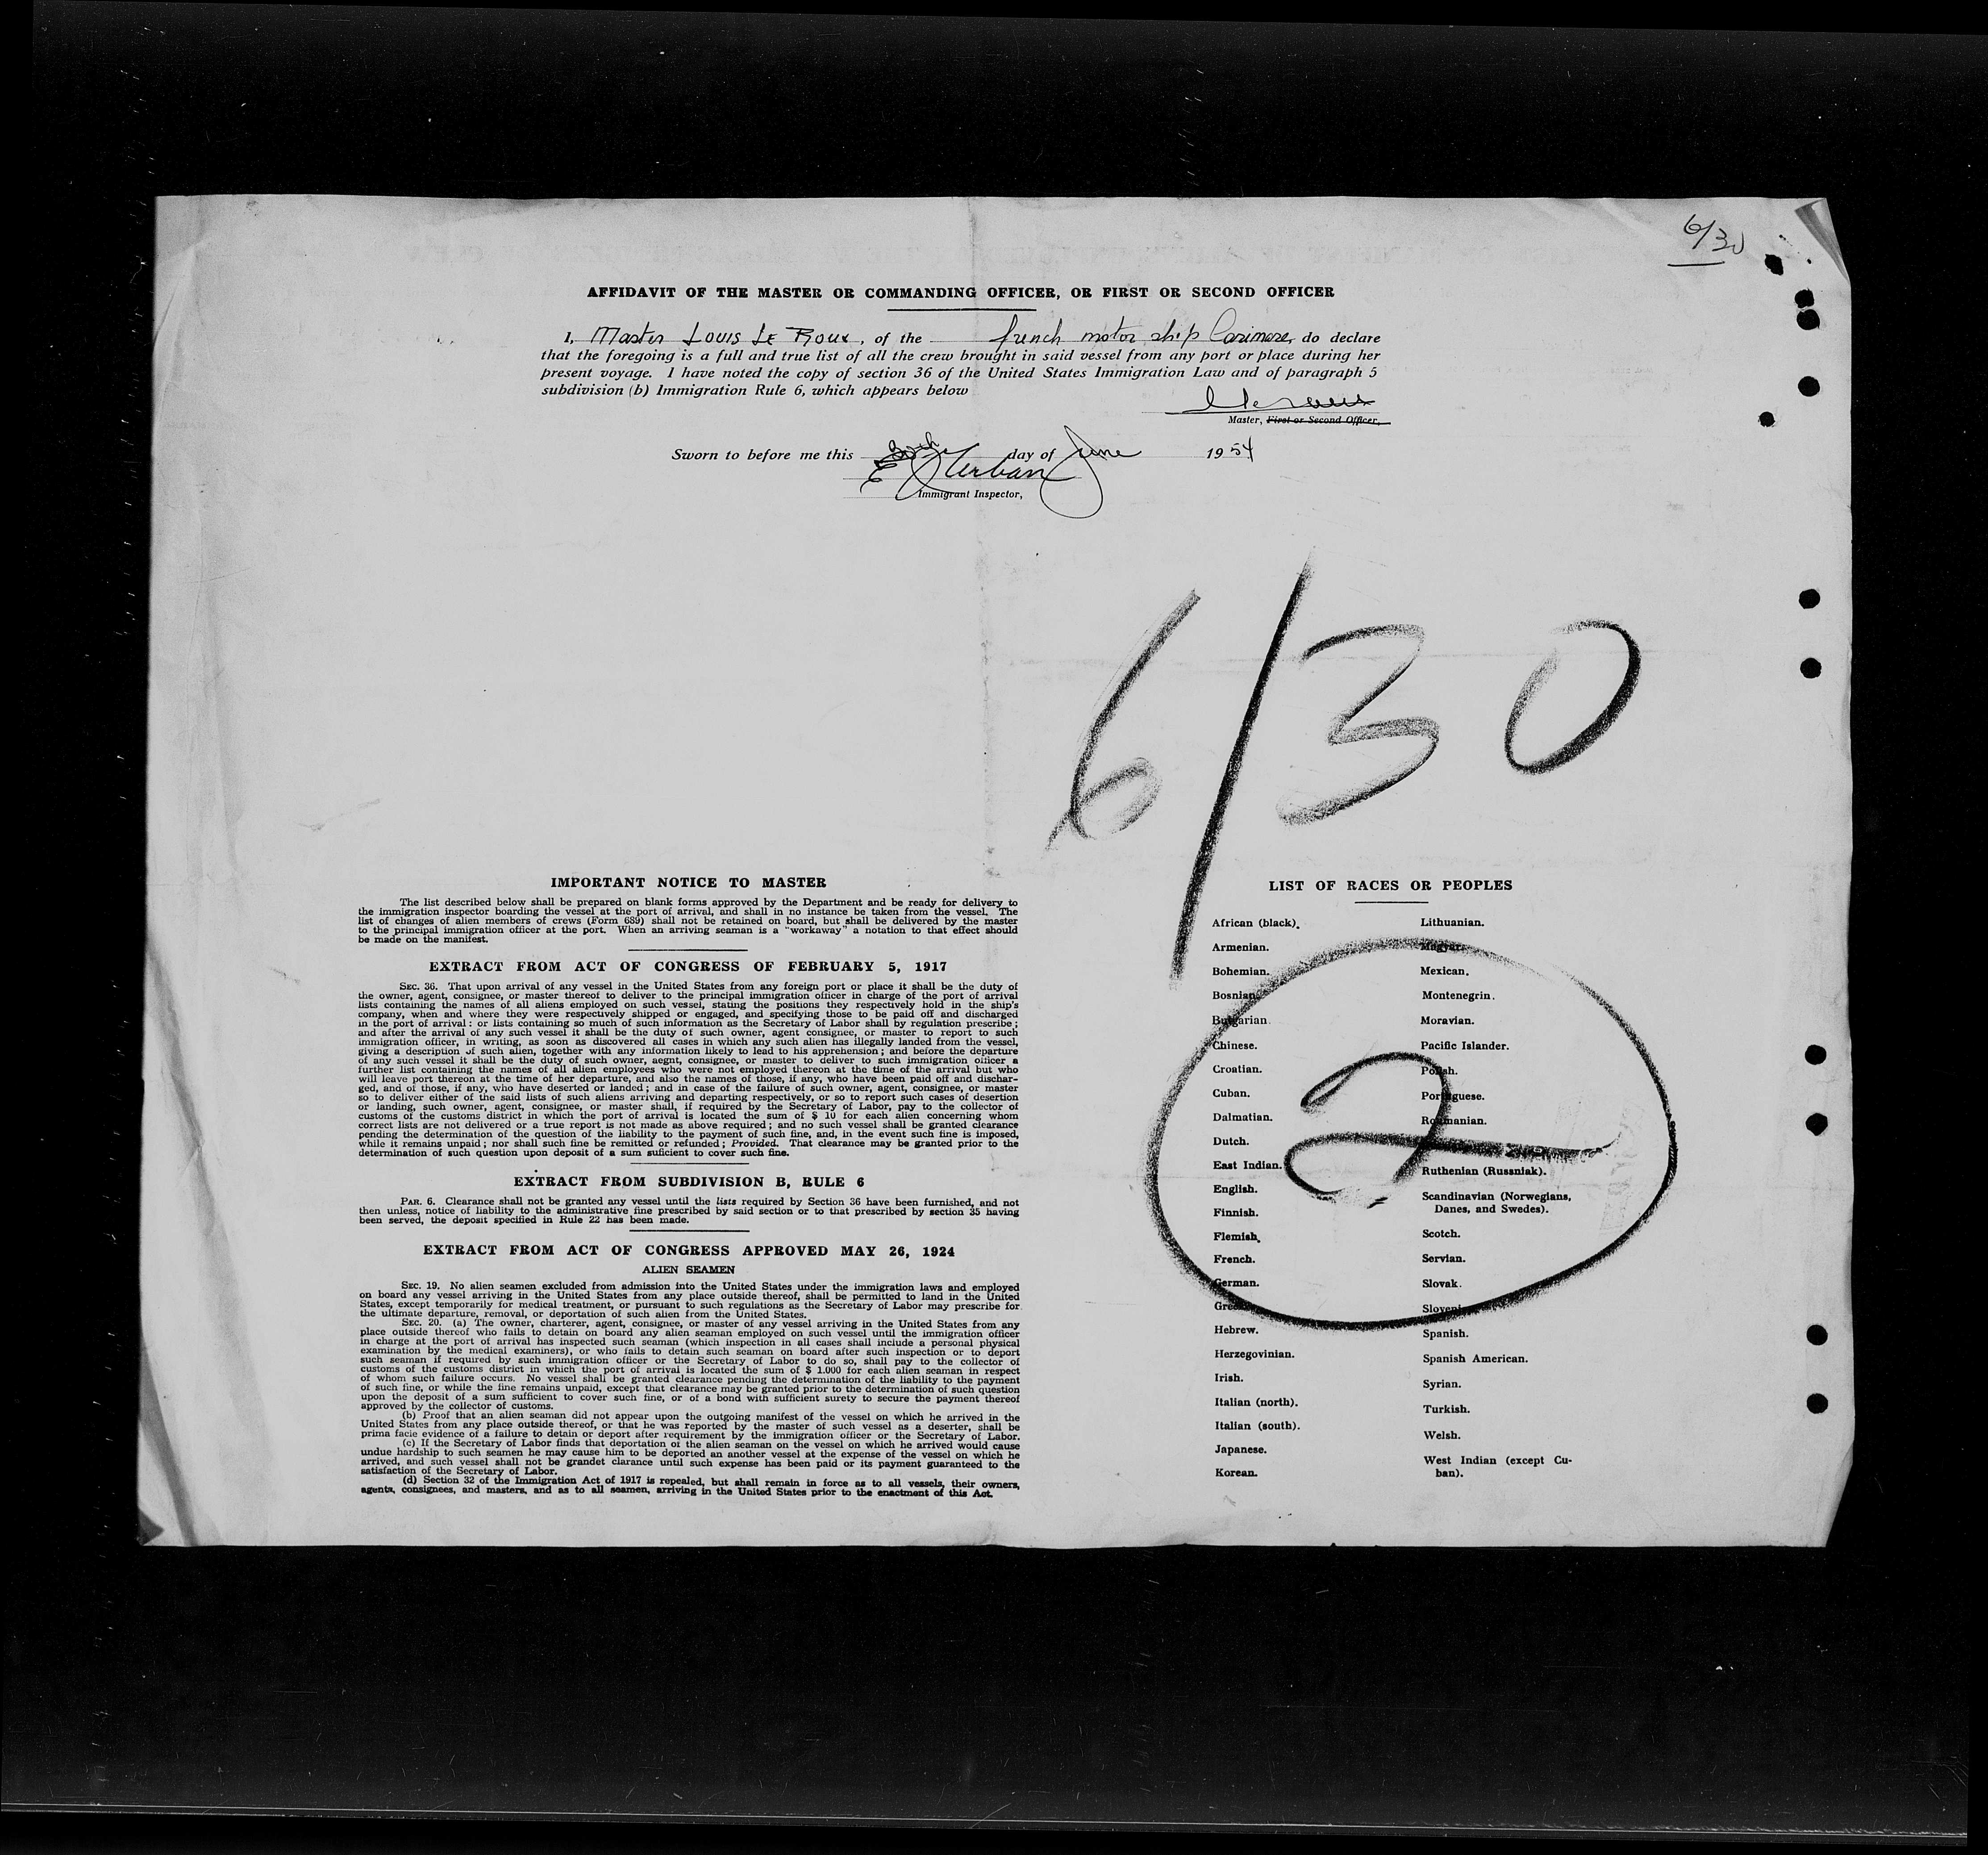 6/30
AFFIDAVIT OF THE MASTER OR COMMANDING OFFICER, OR FIRST OR SECOND OFFICER
I, Master Louis Le Roux, of the french motor ship Carimare, do declare
that the foregoing is a full and true list of all the crew brought in said vessel from any port or place during her
present voyage. I have noted the copy of section 36 of the United States Immigration Law and of paragraph 5
subdivision (b) Immigration Rule 6, which appears below
Master, First or Second Officer,
Sworn to before me this 30th day of June 1954
Immigrant Inspector,
6/30
IMPORTANT NOTICE TO MASTER
The list described below shall be prepared on blank forms approved by the Department and be ready for delivery to
the immigration inspector boarding the vessel at the port of arrival, and shall in no instance be taken from the vessel. The
list of changes of alien members of crews (Form 689) shall not be retained on board, but shall be delivered by the master
to the principal immigration officer at the port. When an arriving seaman is a "workaway" a notation to that effect should
be made on the manifest.
EXTRACT FROM ACT OF CONGRESS OF FEBRUARY 5, 1917
SEC. 36. That upon arrival of any vessel in the United States from any foreign port or place it shall be the duty of
the owner, agent, consignee, or master thereof to deliver to the principal immigration officer in charge of the port of arrival
lists containing the names of all aliens employed on such vessel, stating the positions they respectively hold in the ship's
company, when and where they were respectively shipped or engaged, and specifying those to be paid off and discharged
in the port of arrival : or lists containing so much of such information as the Secretary of Labor shall by regulation prescribe ;
and after the arrival of any such vessel it shall be the duty of such owner, agent consignee, or master to report to such
immigration officer, in writing, as soon as discovered all cases in which any such alien has illegally landed from the vessel,
giving a description of such alien, together with any information likely to lead to his apprehension ; and before the departure
of any such vessel it shall be the duty of such owner, aegnt, consignee, or master to deliver to such immigration officer a
further list containing the names of all alien employees who were not employed thereon at the time of the arrival but who
will leave port thereon at the time of her departure, and also the names of those, if any, who have been paid off and dischar-
ged, and of those, if any, who have deserted or landed ; and in case of the failure of such owner, agent, consignee, or master
so to deliver either of the said lists of such aliens arriving and departing respectively, or so to report such cases of desertion
or landing, such owner, agent, consignee, or master shall, if required by the Secretary of Labor, pay to the collector of
customs of the customs district in which the port of arrival is located the sum of $ 10 for each alien concerning whom
correct lists are not delivered or a true report is not made as above required ; and no such vessel shall be granted clearance
pending the determination of the question of the liability to the payment of such fine, and, in the event such fine is imposed,
while it remains unpaid ; nor shall such fine be remitted or refunded ; Provided. That clearance may be granted prior to the
determination of such question upon deposit of a sum suficient to cover such fine.
EXTRACT FROM SUBDIVISION B, RULE 6
PAR. 6. Clearance shall not be granted any vessel until the lists required by Section 36 have been furnished, and not
then unless, notice of liability to the administrative fine prescribed by said section or to that prescribed by section 35 having
been served, the deposit specified in Rule 22 has been made.
EXTRACT FROM ACT OF CONGRESS APPROVED MAY 26, 1924
ALIEN SEAMEN
SEC. 19. No alien seamen excluded from admission into the United States under the immigration laws and employed
on board any vessel arriving in the United States from any place outside thereof, shall be permitted to land in the United
States, except temporarily for medical treatment, or pursuant to such regulations as the Secretary of Labor may prescribe for
the ultimate departure, removal, or deportation of such alien from the United States.
SEC. 20. (a) The owner, charterer, agent, consignee, or master of any vessel arriving in the United States from any
place outside thereof who fails to detain on board any alien seaman employed on such vessel until the immigration officer
in charge at the port of arrival has inspected such seaman (which inspection in all cases shall include a personal physical
examination by the medical examiners), or who fails to detain such seaman on board after such inspection or to deport
such seaman if required by such immigration officer or the Secretary of Labor to do so, shall pay to the collector of
customs of the customs district in which the port of arrival is located the sum of $ 1.000 for each alien seaman in respect
of whom such failure occurs. No vessel shall be granted clearance pending the determination of the liability to the payment
of such fine, or while the fine remains unpaid, except that clearance may be granted prior to the determination of such question
upon the deposit of a sum sufficient to cover such fine, or of a bond with sufficient surety to secure the payment thereof
approved by the collector of customs.
(b) Proof that an alien seaman did not appear upon the outgoing manifest of the vessel on which he arrived in the
United States from any place outside thereof, or that he was reported by the master of such vessel as a deserter, shall be
prima facie evidence of a failure to detain or deport after requirement by the immigration officer or the Secretary of Labor.
(c) If the Secretary of Labor finds that deportation of the alien seaman on the vessel on which he arrived would cause
undue hardship to such seamen he may cause him to be deported an another vessel at the expense of the vessel on which he
arrived, and such vessel shall not be grandet clarance until such expense has been paid or its payment guaranteed to the
satisfaction of the Secretary of Labor.
(d) Section 32 of the Immigration Act of 1917 is repealed, but shall remain in force as to all vessels, their owners,
agents, consignees, and masters, and as to all seamen, arriving in the United States prior to the enactment of this Act.
LIST OF RACES OR PEOPLES
African (black).
Armenian.
Bohemian.
Bosnian.
Bulgarian.
Chinese.
Croatian.
Cuban.
Dalmatian.
Dutch.
East Indian.
English.
Finnish.
Flemish.
French.
German.
Greek.
Hebrew.
Herzegovinian.
Irish.
Italian (north).
Italian (south).
Japanese.
Korean.
Lithuanian.
Magyar.
Mexican.
Montenegrin.
Moravian.
Pacific Islander.
Polish.
Portuguese.
Roumanian.
Ruthenian (Russniak).
Scandinavian (Norwegians,
Danes, and Swedes).
Scotch.
Servian.
Slovak.
Slovenian.
Spanish.
Spanish American.
Syrian.
Turkish.
Welsh.
West Indian (except Cu-
ban).
2